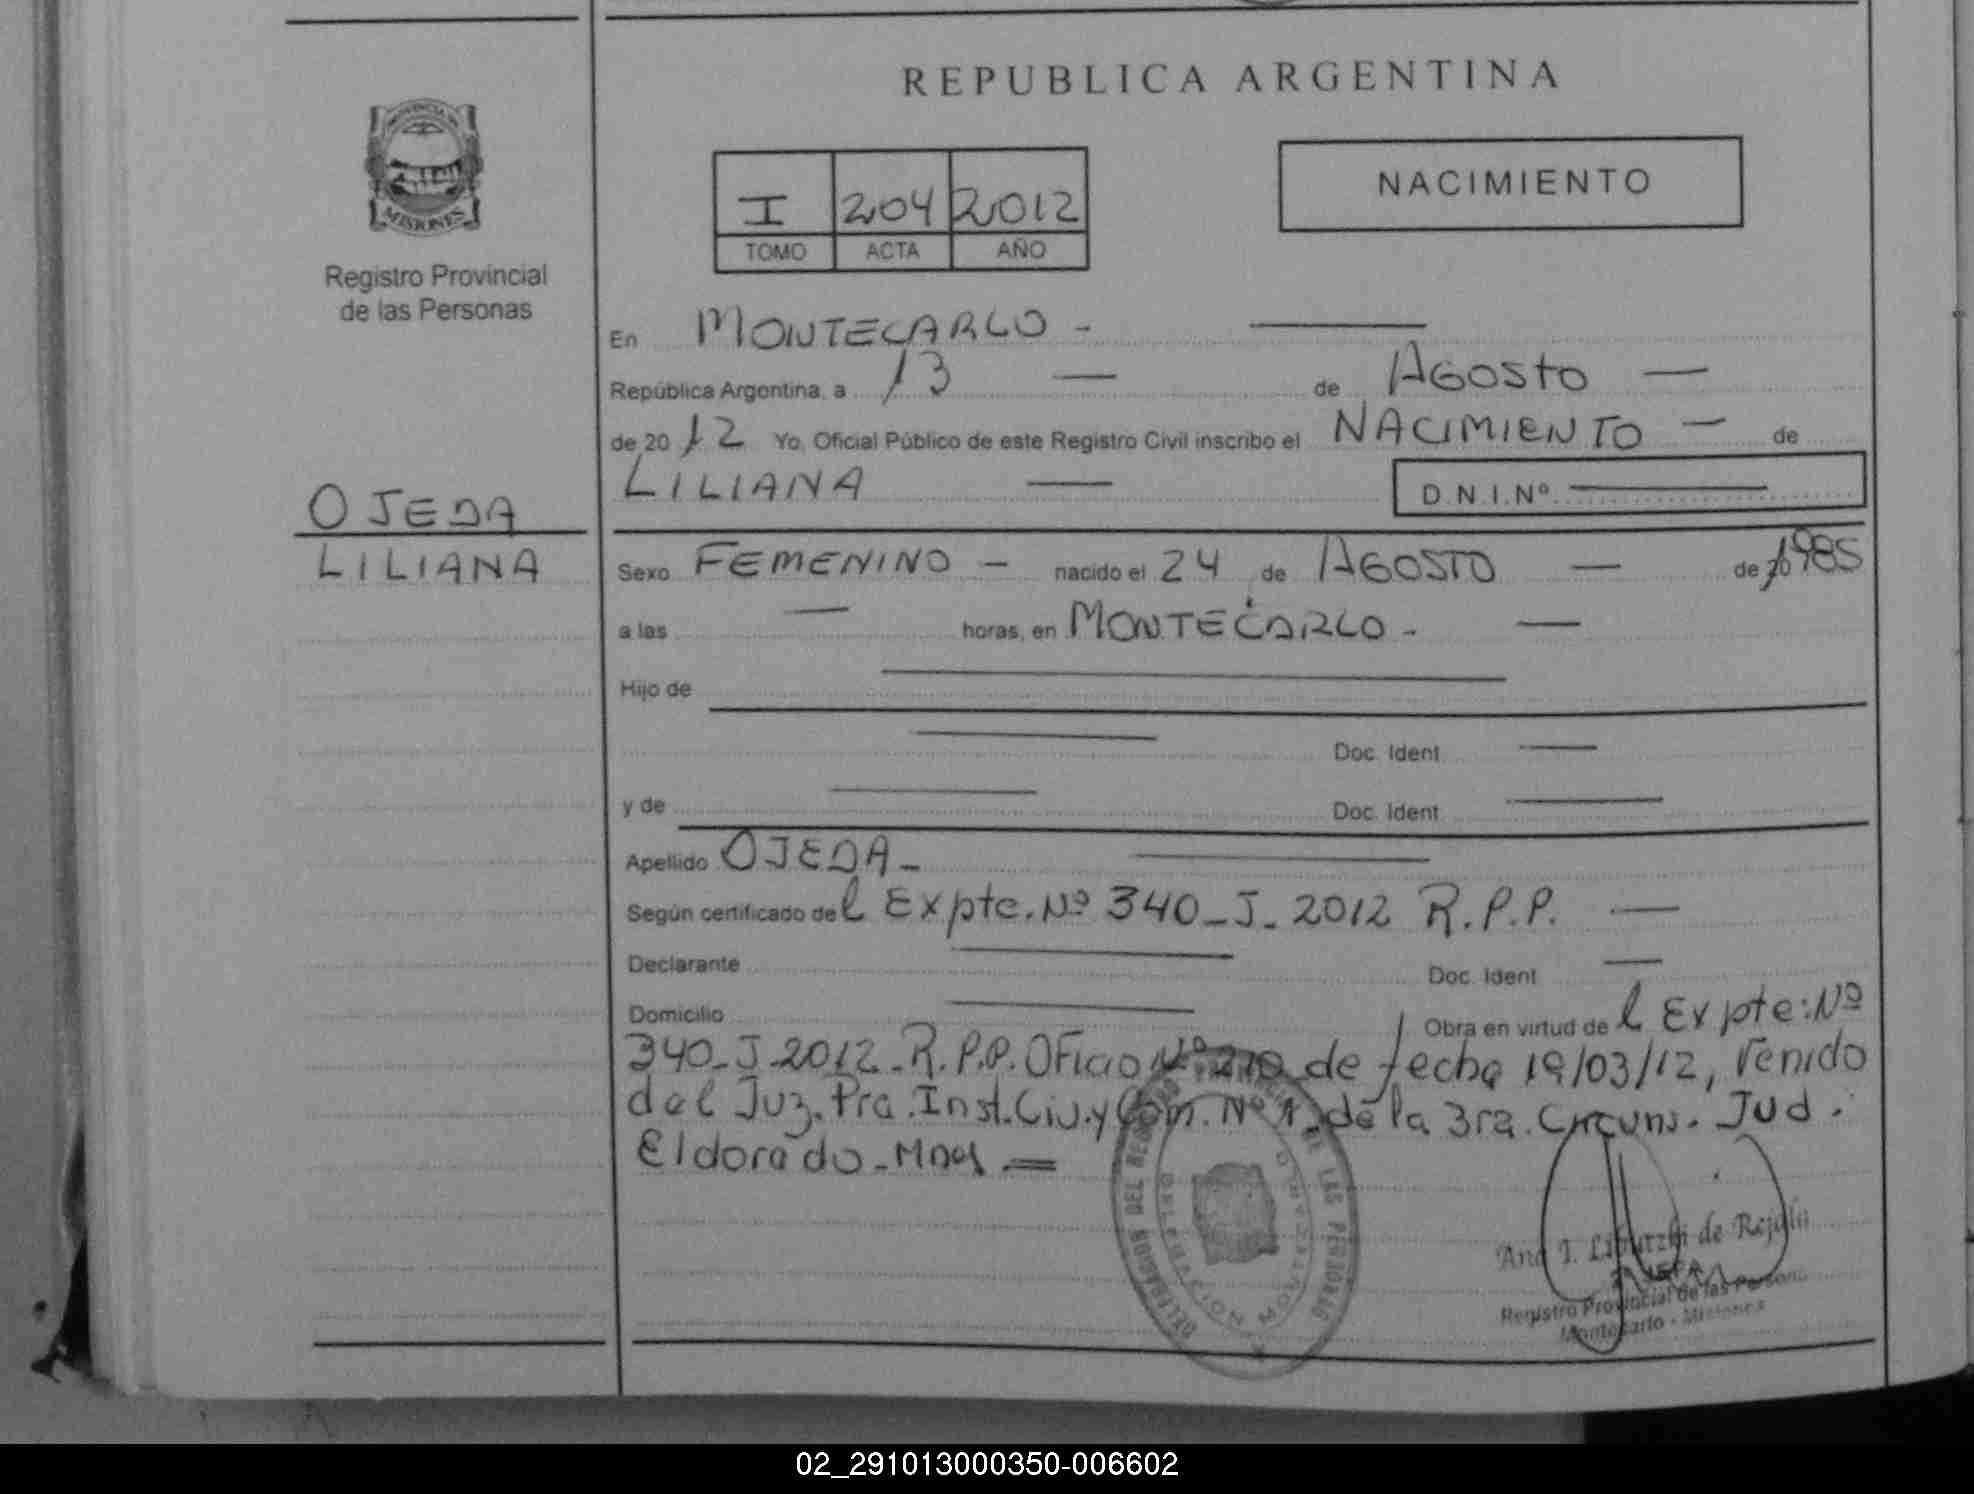 REPUBLICA ARGENTINA
PROVINCIA DE
MISIONES
Registro Provincial
de las Personas
I 204 2012
TOMO ACTA AÑO
NACIMIENTO
En MONTECARLO -
República Argentina, a 13 de AGOSTO
de 2012 Yo, Oficial Público de este Registro Civil inscribo el NACIMIENTO de
LILIANA D.N.I.Nº
OJEDA
LILIANA
Sexo FEMENINO - nacido el 24 de AGOSTO de 1985
a las horas, en MONTECARLO -
Hijo de
Doc. Ident
y de Doc. Ident
Apellido OJEDA -
Según certificado del Expte. Nº 340_J_2012 R.P.P.
Declarante Doc. Ident
Domicilio Obra en virtud del Expte: Nº
340_J_2012_R.P.P. Oficio Nº 210 de fecha 19/03/12, venido
del Juz. Pra. Inst. Civ. y Com. Nº 1 de la 3ra. Circuns. Jud.
Eldorado - Mnes =
DELEGACION DEL REGISTRO DE LAS PERSONAS
DELEGACION MONTECARLO
Ana I. de
JEFA
Registro Provincial de las Personas
Montecarlo - Misiones
02_291013000350-006602